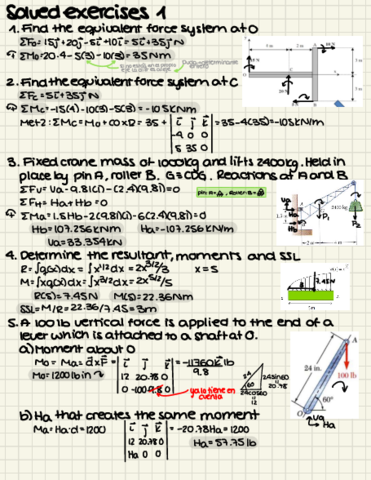 Solved exercises 1
1. Find the equivalent force system at O
ΣFo=15j+20j-5i+10i=5i+35j N
ΣMo=20·4-5(3)-10(3)=35Nm
2. Find the equivalent force system at C
ΣFc=5i+35j N
ΣMc=-15(4)-10(3)-5(3)=-105KNm
Met 2: ΣMc=Mo+co×Ω=35+ | i j k | =35-4(35)=-105KNm
-4 0 0
5 35 0
3. Fixed crane mass of 1000kg and lifts 2400kg. Held in
place by pin A, roller B. G=CDG. Reactions at A and B
ΣFv=Va-9.81(1)-(2.4)(9.81)=0
ΣFH=Ha+Hb=0
ΣMa=1.5Hb-2(9.81)(1)-6(2.4)(9.81)=0
Hb=107.256KN Ha=-107.256KN
Va=33.354KN
4. Determine the resultant, moments and SSL
R=∫q(x)dx=∫x^1/2dx=2x^3/2/3 x=5
M=∫xq(x)dx=∫x^3/2dx=2x^5/2/5
R(5)=7.45N M(5)=22.36Nm
SSL=M/R=22.36/7.45=3m
5. A 100 lb vertical force is applied to the end of a
lever which is attached to a shaft at O.
a) Moment about O
Mo=Ma=d×F= | i j k | = -11760K lb
12 20.78 0
0 -100·9.8 0
9.8
Mo=1200lb in
ya lo tiene en
cuenta
24sin60
=20.78
24cos60
=12
60
24 in.
A
100 lb
60°
O
Va
Ha
b) Ha that creates the same moment
Ma=Ha·d=1200 | i j k | =-20.78Ha=1200
12 20.78 0
Ha 0 0
Ha=57.75lb